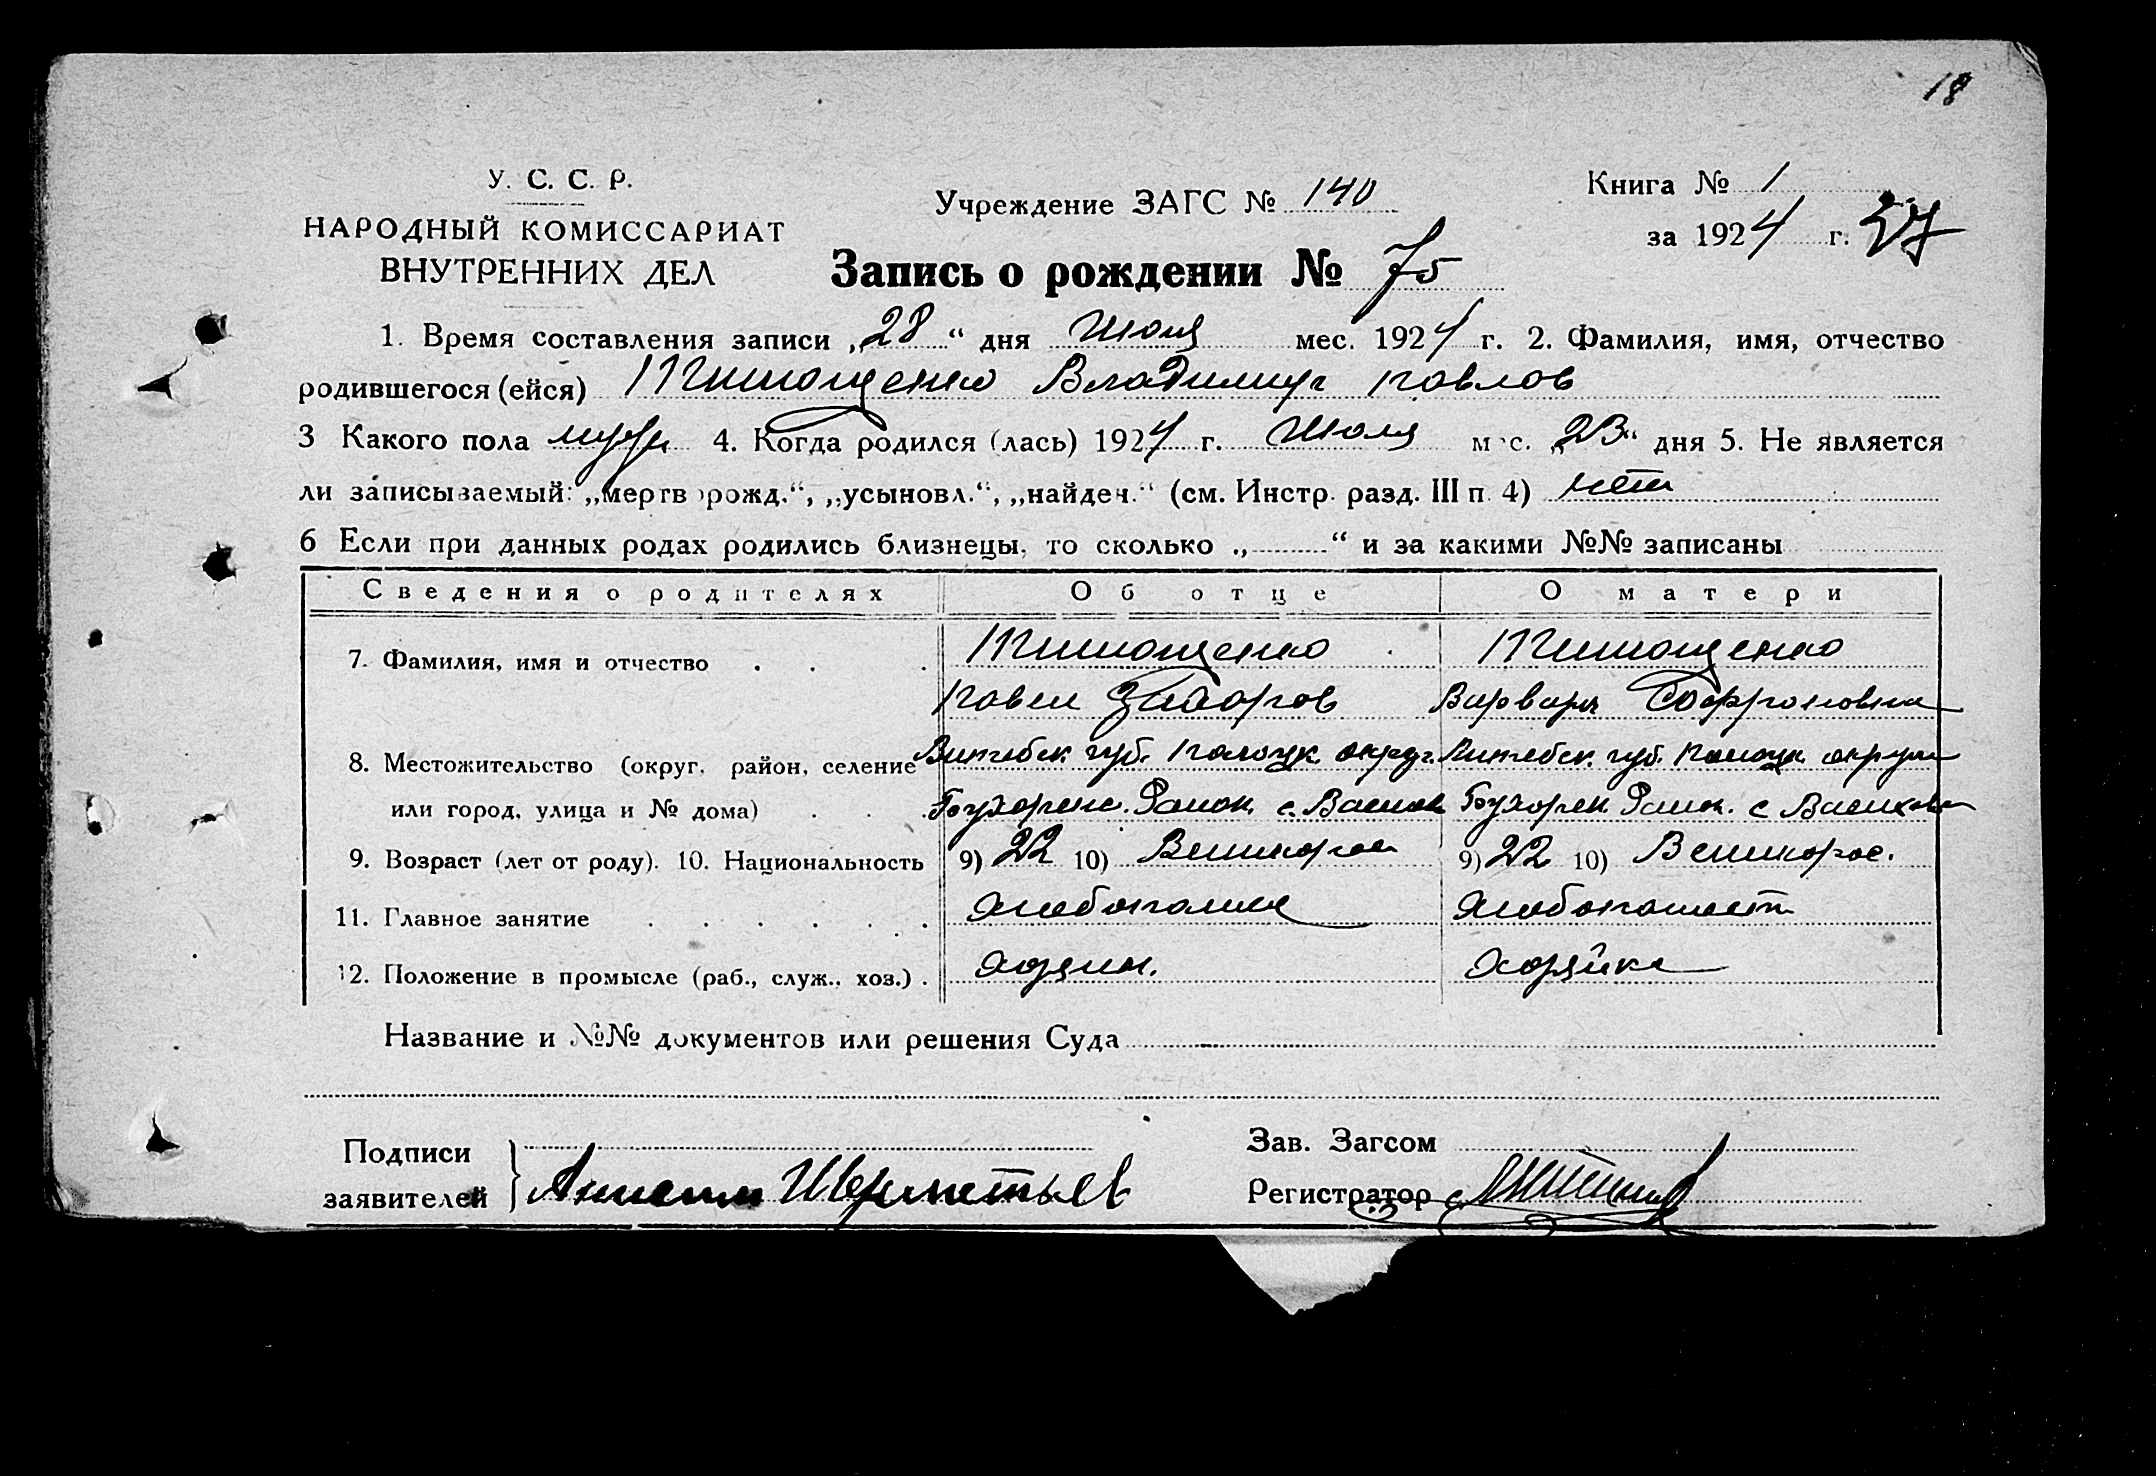 18
У. С. С. Р.
НАРОДНЫЙ КОМИССАРИАТ
ВНУТРЕННИХ ДЕЛ
Учреждение ЗАГС № 140
Книга № 1
за 1924 г. 27
Запись о рождении № 75
1. Время составления записи „28“ дня Июля мес. 1924 г. 2. Фамилия, имя, отчество
родившегося (ейся) Тимощенко Владимир Павлов
3 Какого пола муж 4. Когда родился (лась) 1924 г. Июля мес. „23“ дня 5. Не является
ли записываемый: „мертворожд.“, „усыновл.“, „найден.“ (см. Инстр. разд. III п. 4) нет
6 Если при данных родах родились близнецы, то сколько „ “ и за какими №№ записаны
Сведения о родителях Об отце О матери
7. Фамилия, имя и отчество Тимощенко Тимощенко
Павел Варвара Софроновна
8. Местожительство (округ, район, селение Витебск. губ. Полоцк. округ. Витебск. губ. Полоцк. округа
или город, улица и № дома) Район. с. Район. с
9. Возраст (лет от роду). 10. Национальность 9) 22 10) Великорос 9) 22 10) Великорос.
11. Главное занятие Хлебопашец Хлебопашест
12. Положение в промысле (раб., служ., хоз.) хозяин. хозяйка
Название и №№ документов или решения Суда
Подписи
заявителей
Зав. Загсом
Регистратор